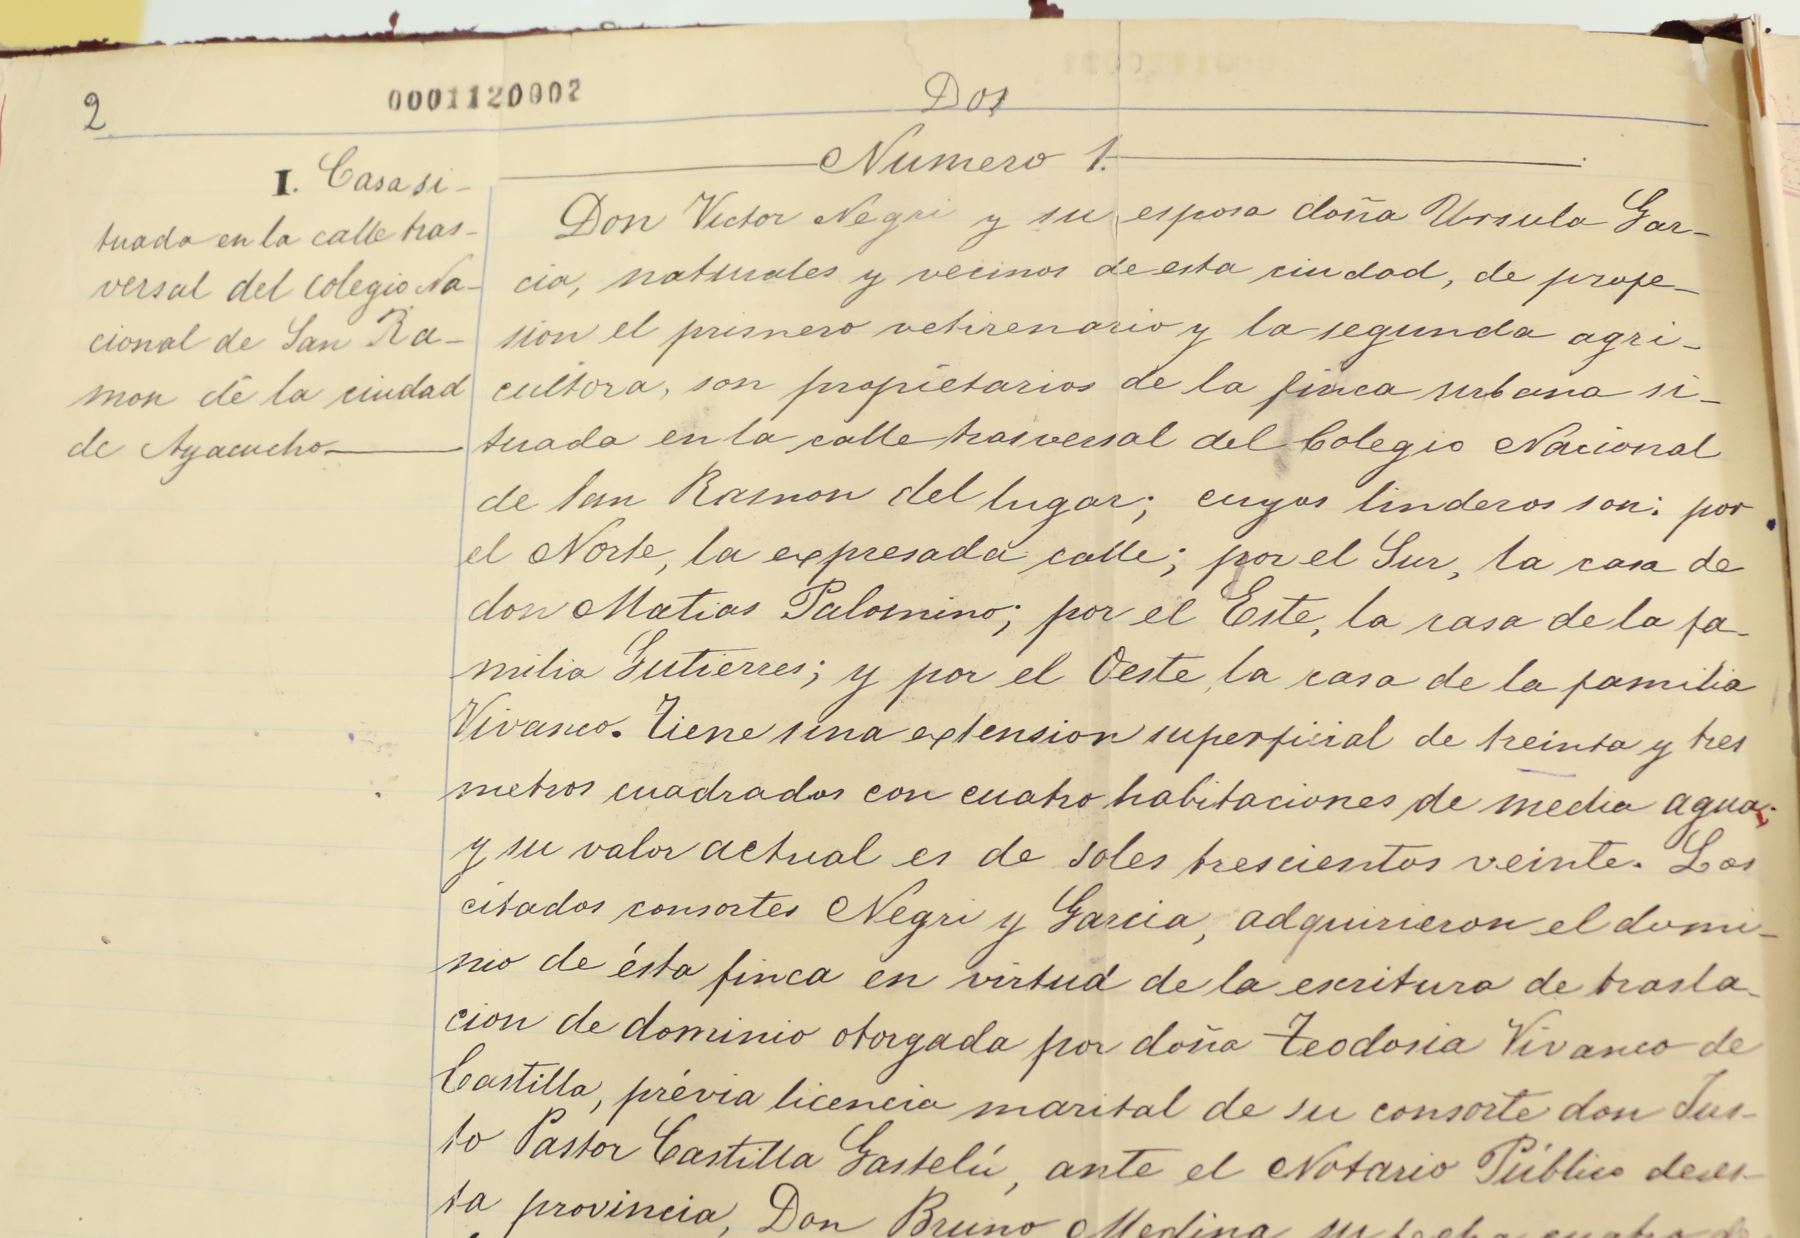 2
0001120002
Dos
Numero 1.
I. Casa si-
tuada en la calle tras-
versal del Colegio Na-
cional de San Ra-
mon de la ciudad
de Ayacucho
Don Victor Negri y su esposa doña Ursula Gar-
cia, naturales y vecinos de esta ciudad, de profe-
sion el primero vetirenario y la segunda agri-
cultora, son propietarios de la finca urbana si-
tuada en la calle trasversal del Colegio Nacional
de San Ramon del lugar; cuyos linderos son: por
el Norte, la expresada calle; por el Sur, la casa de
don Matias Palomino; por el Este, la casa de la fa-
milia Gutierres; y por el Oeste, la casa de la familia
Vivanco. Tiene una extension superficial de treinta y tres
metros cuadrados con cuatro habitaciones de media agua;
y su valor actual es de soles trescientos veinte. Los
citados consortes Negri y Garcia, adquirieron el domi-
nio de ésta finca en virtud de la escritura de trasla-
cion de dominio otorgada por doña Teodosia Vivanco de
Castilla, prévia licencia marital de su consorte don Jus-
to Pastor Castilla Gastelú, ante el Notario Público de es-
ta provincia, Don Bruno Medina, su fecha cuatro de